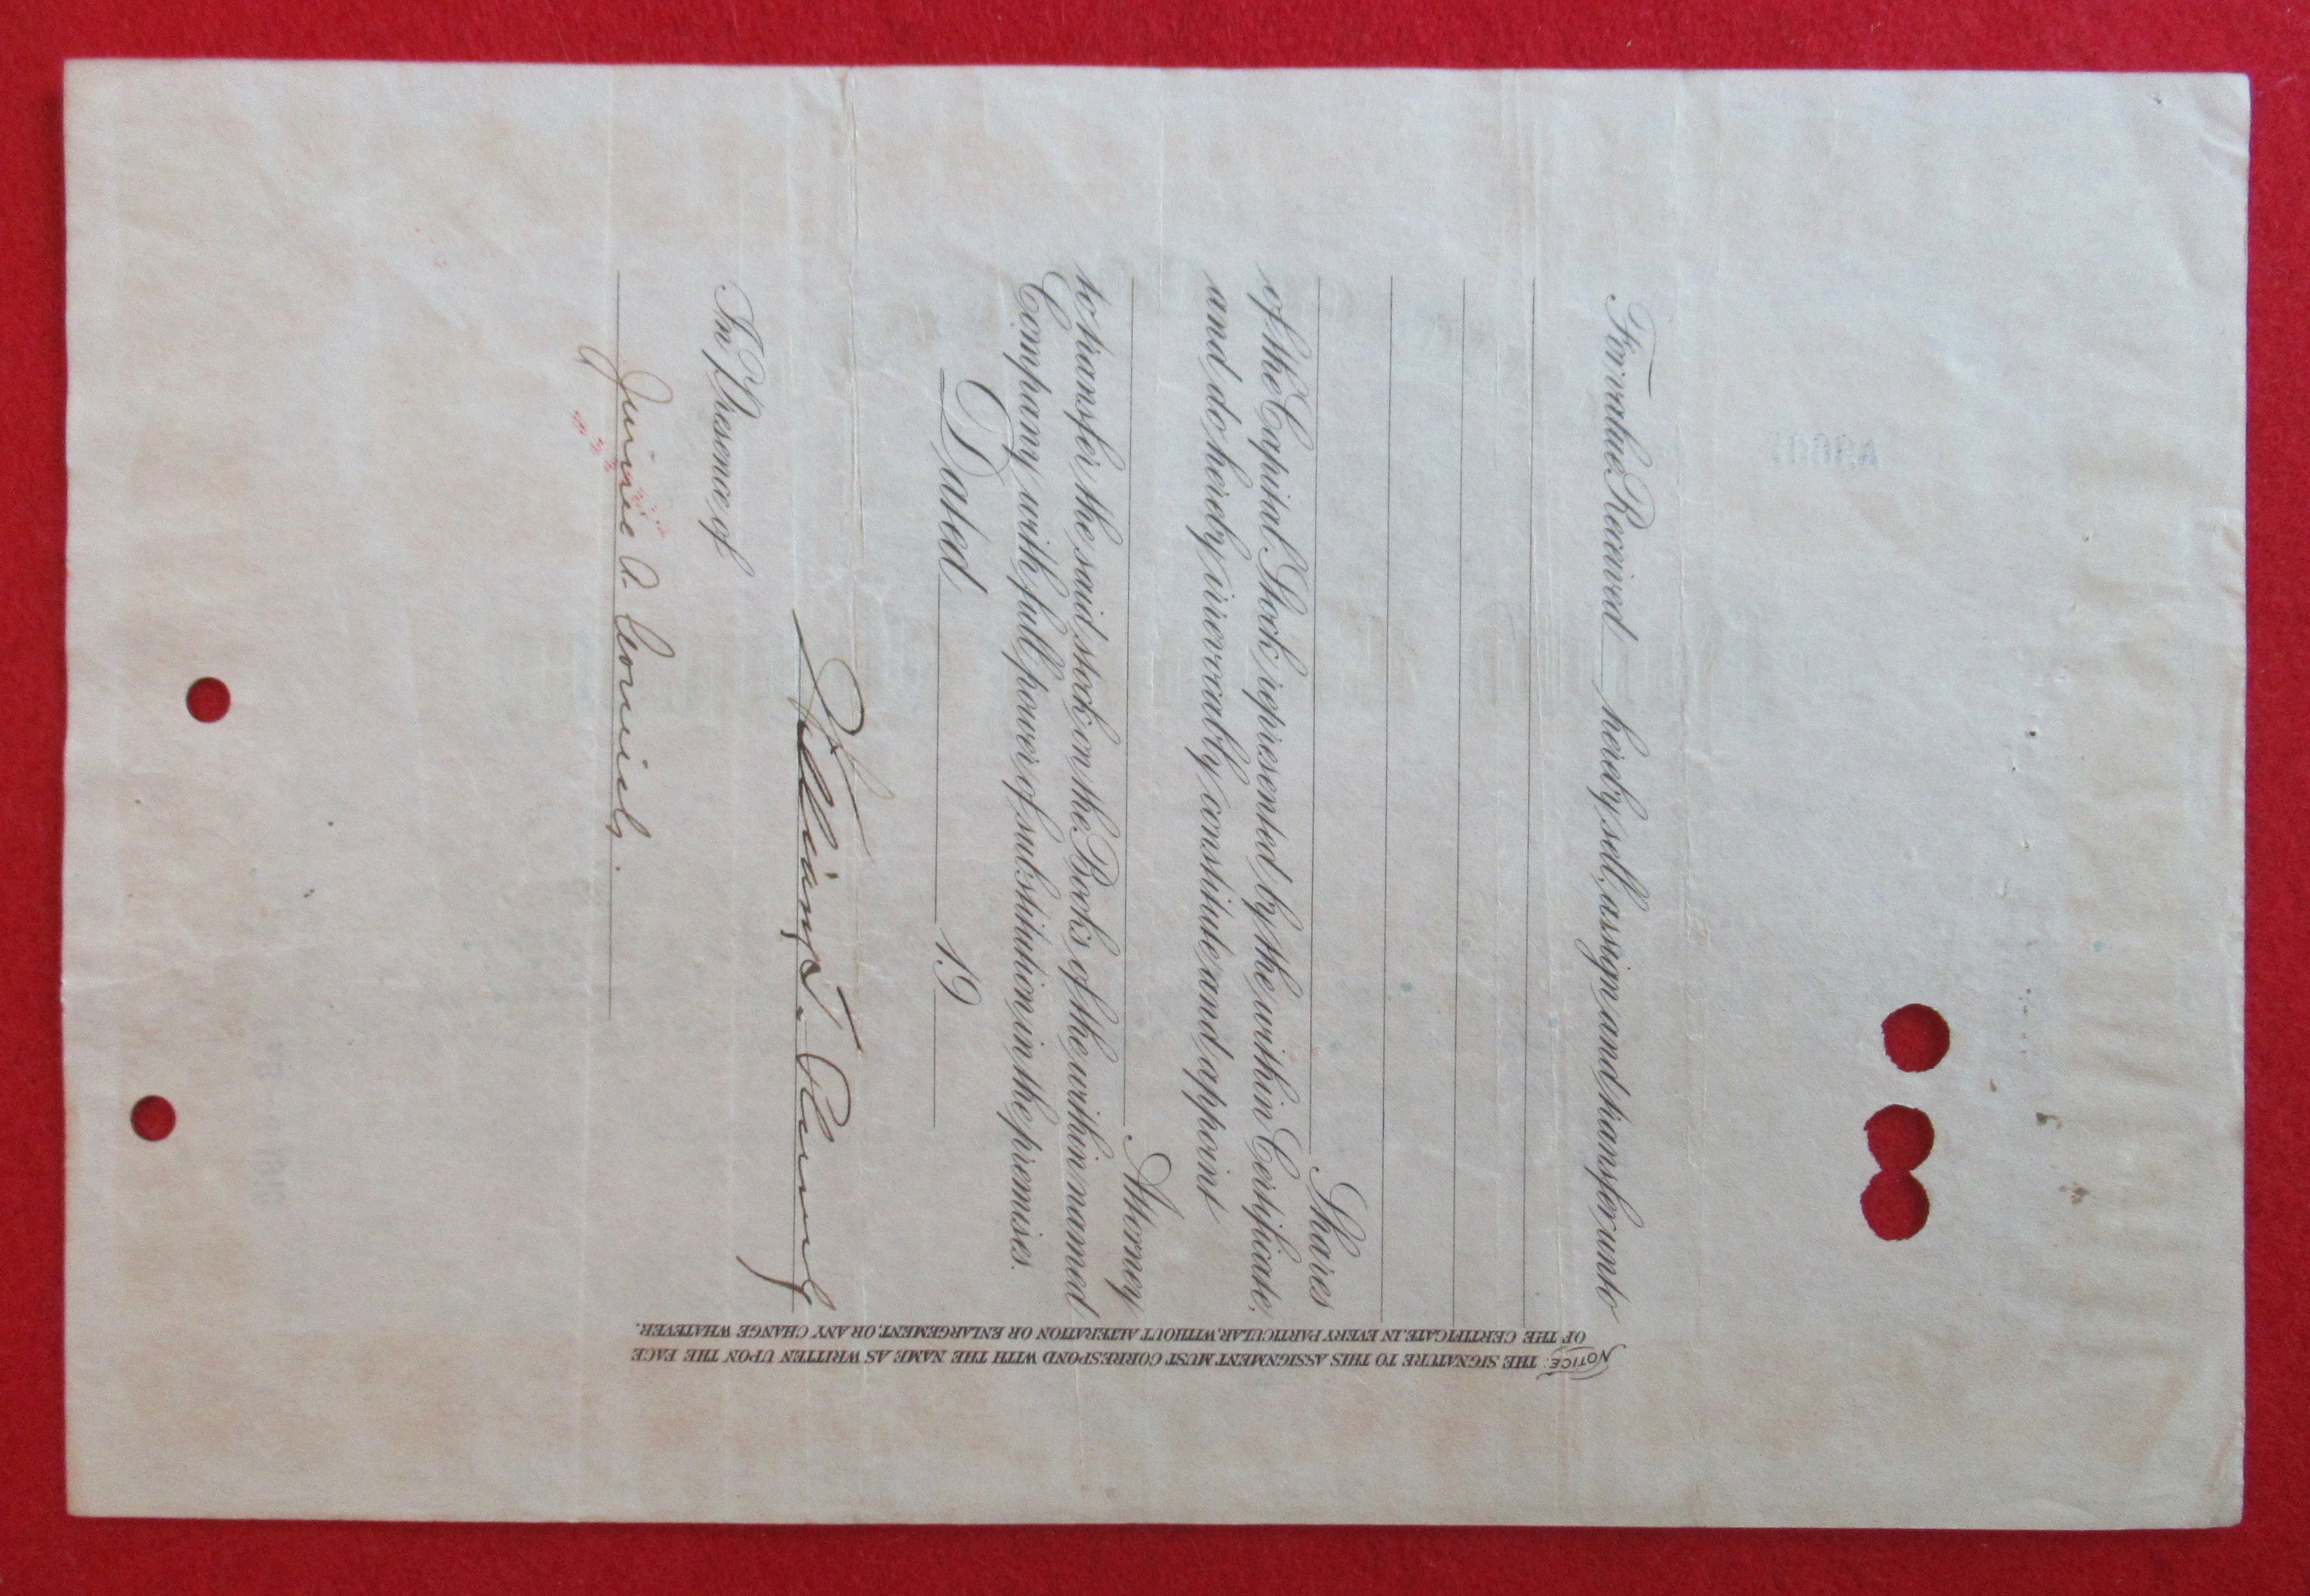 For value Received hereby sell, assign and transfer unto
Shares
of the Capital Stock represented by the within Certificate,
and do hereby irrevocably constitute and appoint
Attorney
to transfer the said stock on the Books of the within named
Company with full power of substitution in the premises.
Dated 19
William T.
In Presence of
Jennie A.
NOTICE: THE SIGNATURE TO THIS ASSIGNMENT MUST CORRESPOND WITH THE NAME AS WRITTEN UPON THE FACE
OF THE CERTIFICATE, IN EVERY PARTICULAR, WITHOUT ALTERATION OR ENLARGEMENT, OR ANY CHANGE WHATEVER.